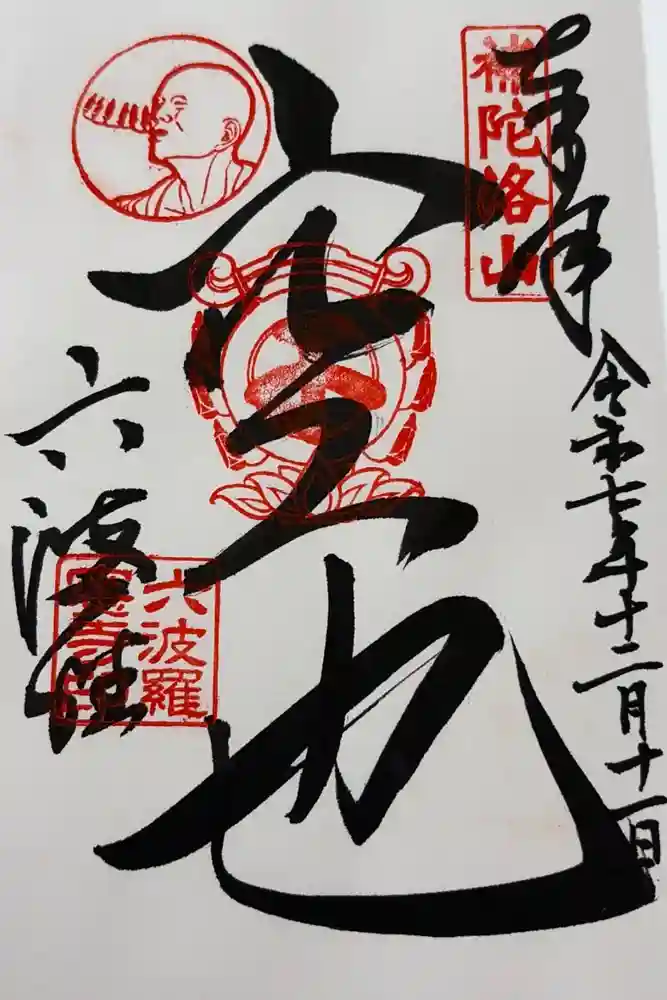 奉拝
令和七年十二月十一日
補陀洛山
空也
六波羅
六波羅
蜜寺印